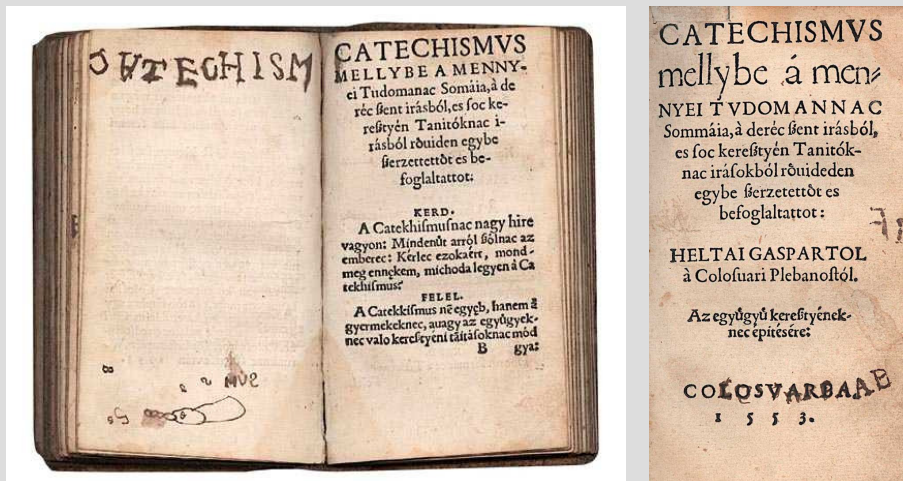 CATECHISM
CATECHISMVS
MELLYBE A MENNY-
ei Tudomanac Somáia, à de
réc ßent irásból, es ſoc ke-
reßtyén Tanitóknac i-
rásból rǒuiden egybe
ßerzettettǒt es be-
foglaltattot:
KERD.
A Catekhiſmuſnac nagy hire
vagyon: Mindenůt arról ßólnac az
emberec: Kérlec ezokaért, mond-
meg ennekem, michoda legyen à Ca
tekhiſmus?
FELEL.
A Catekkiſmus nē egyęb, hanem ā
gyermekeknec, auagy az egyůgyek-
nec valo kereſztyéni tāitáſoknac mód
B gya:
CATECHISMVS
mellybe á men-
NYEI TVDOMANNAC
Sommáia, à deréc ßent irásból,
es ſoc kereßtyén Tanitók-
nac iráſokból rǒuideden
egybe ßerzetettǒt es
befoglaltattot:
HELTAI GASPARTOL
à Coloſuari Plebanoſtól.
Az egyůgyů kereßtyének-
nec épitésére:
COLOSVARBA AB
1 5 5 3.